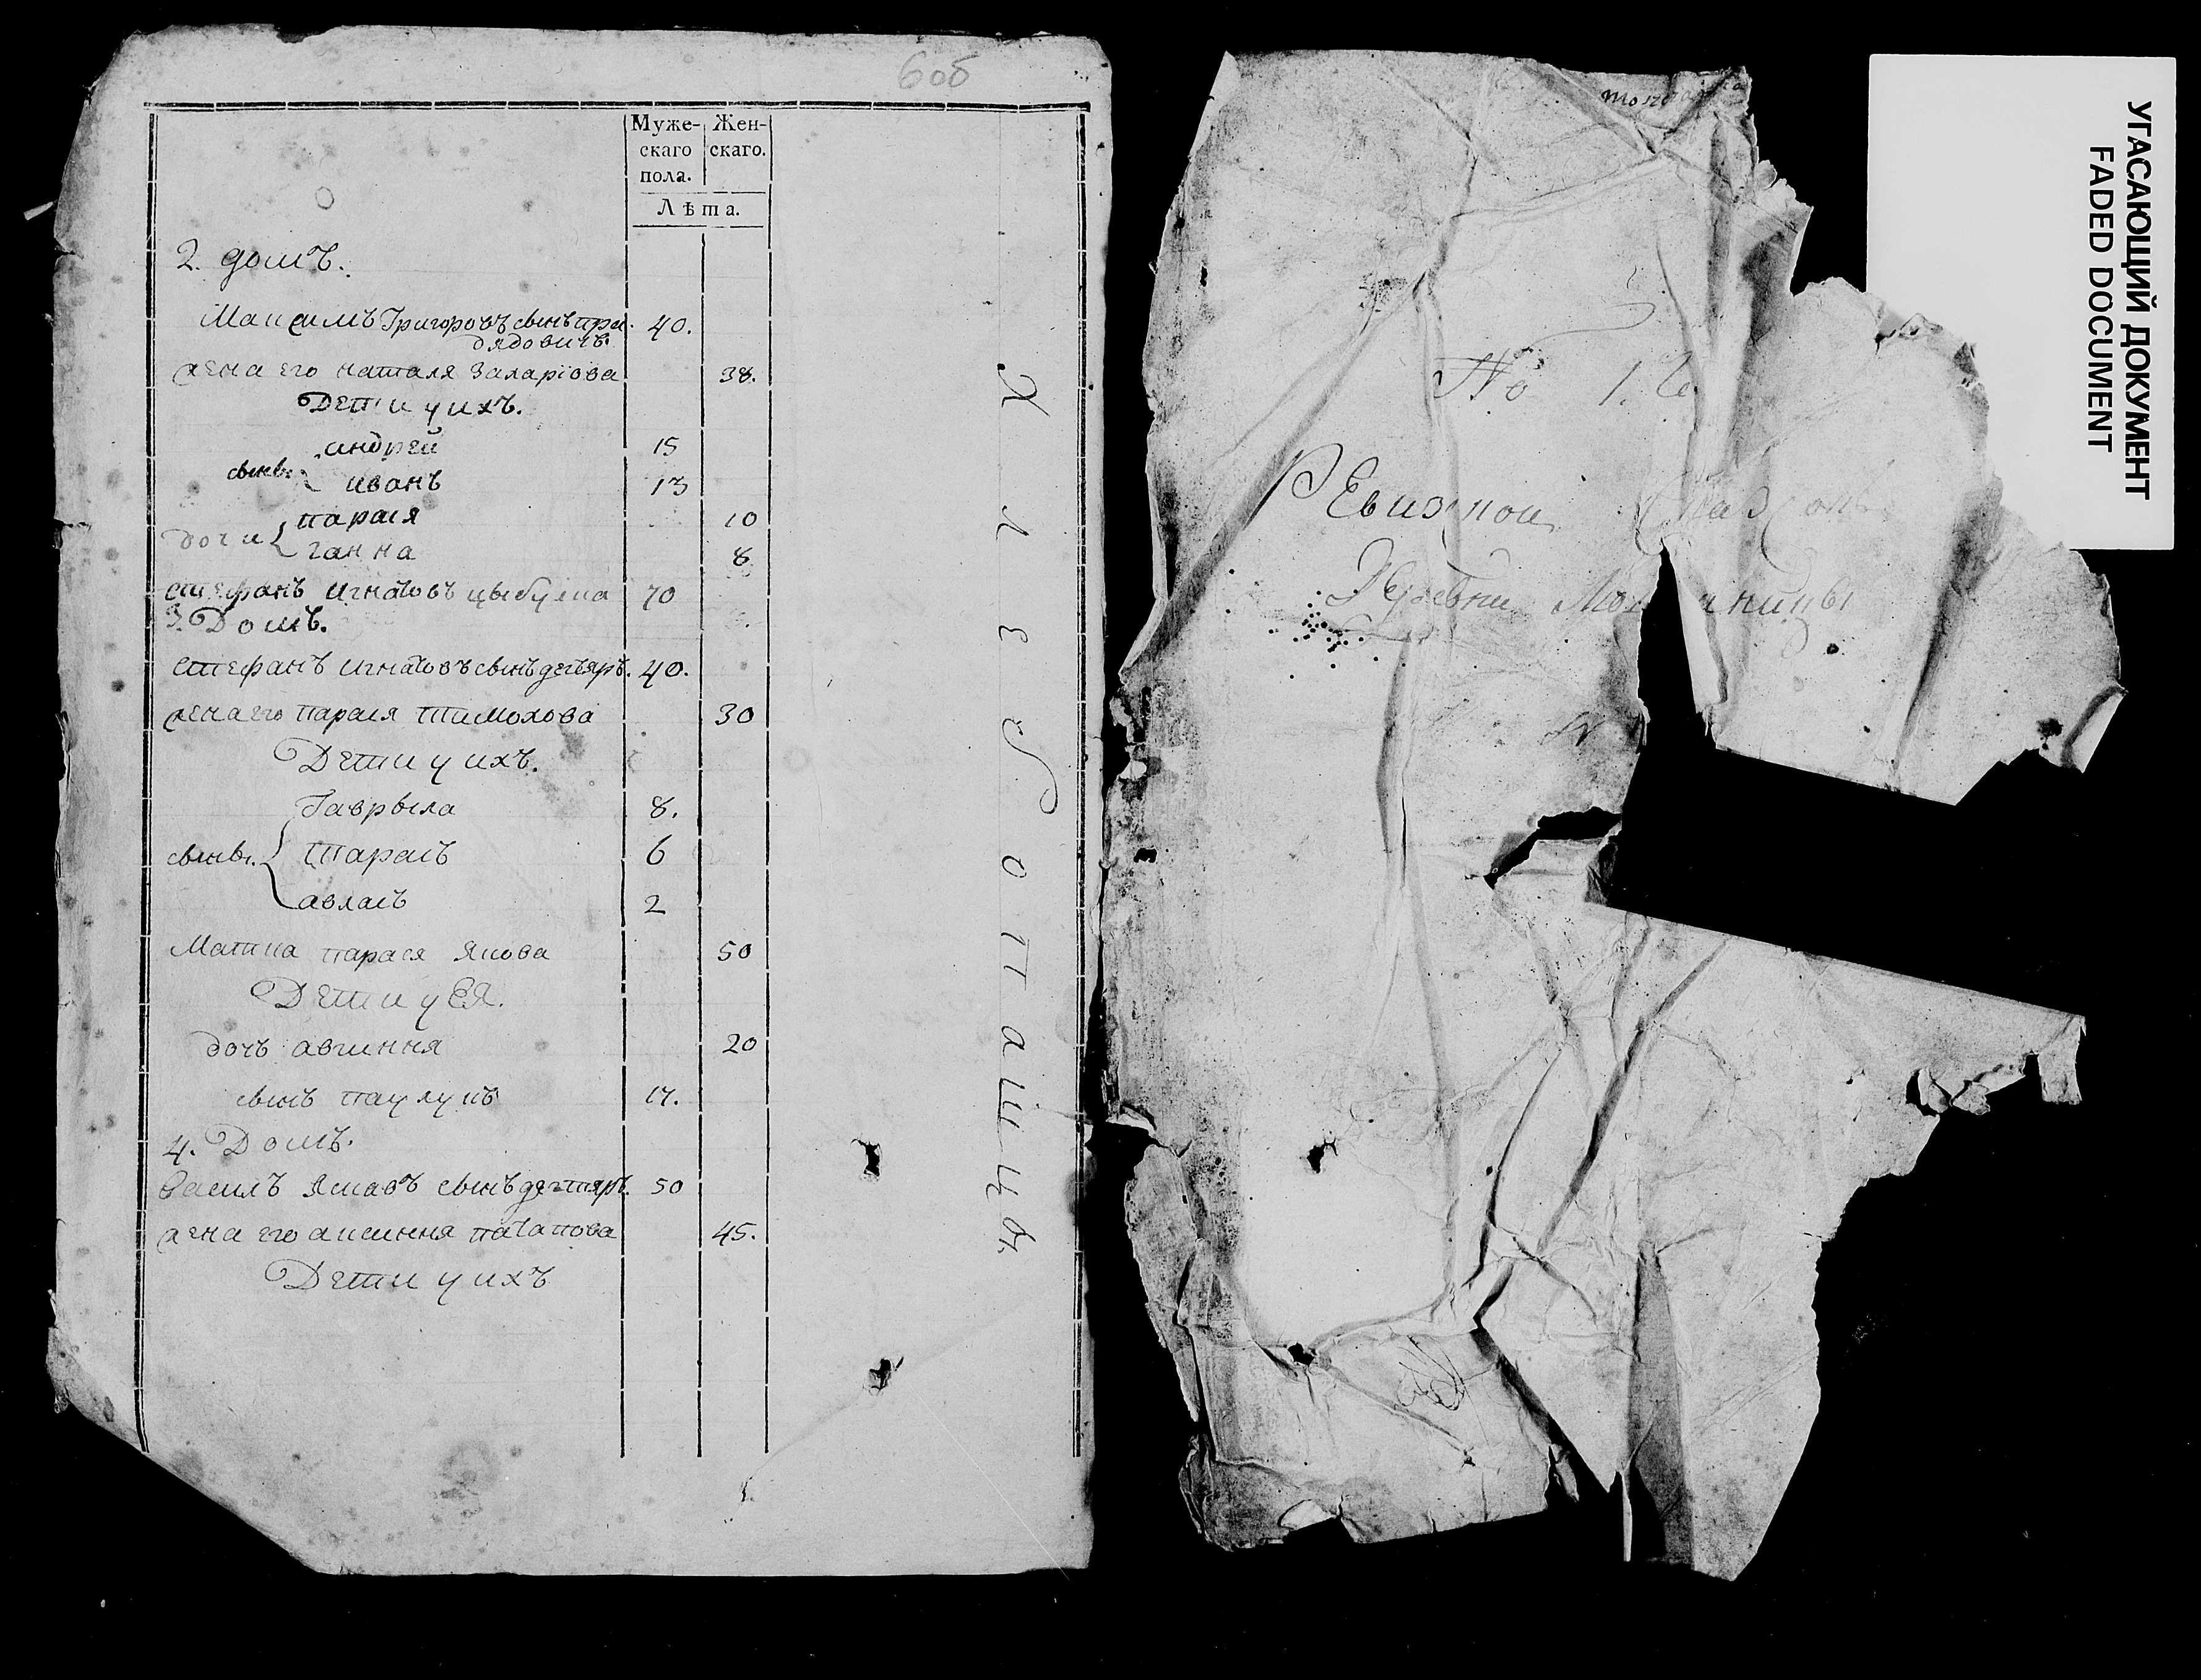 606
Муже- Жен-
скаго скаго.
пола.
Лѣта.
2. домъ.
Максимъ Григоровъ сынъ при- 40.
дядовичъ.
жена его наталя Захаріова 38.
Дети у ихъ.
андрей 15
сыны иванъ 13
парася 10
дочки ганна 8
стефанъ игнатовъ цыбулка 70
3. Домъ.
стефанъ игнатовъ сынъ дегтяръ. 40.
жена его парася тимохова 30
Дети у ихъ.
Гаврыла 8.
сыны. тарасъ 6
авласъ 2
Матка парася Якова 50
Дети у Ея.
дочъ авгиння 20
сынъ паулукъ 17.
4. Домъ.
Васил Ясковъ сынъ дегтяръ. 50
жена его аксиння патапова 45.
Дети у ихъ
Х л е б о п а ш ц ы
No 1.
Ревизкои
Деревни
УГАСАЮЩИЙ ДОКУМЕНТ
FADED DOCUMENT